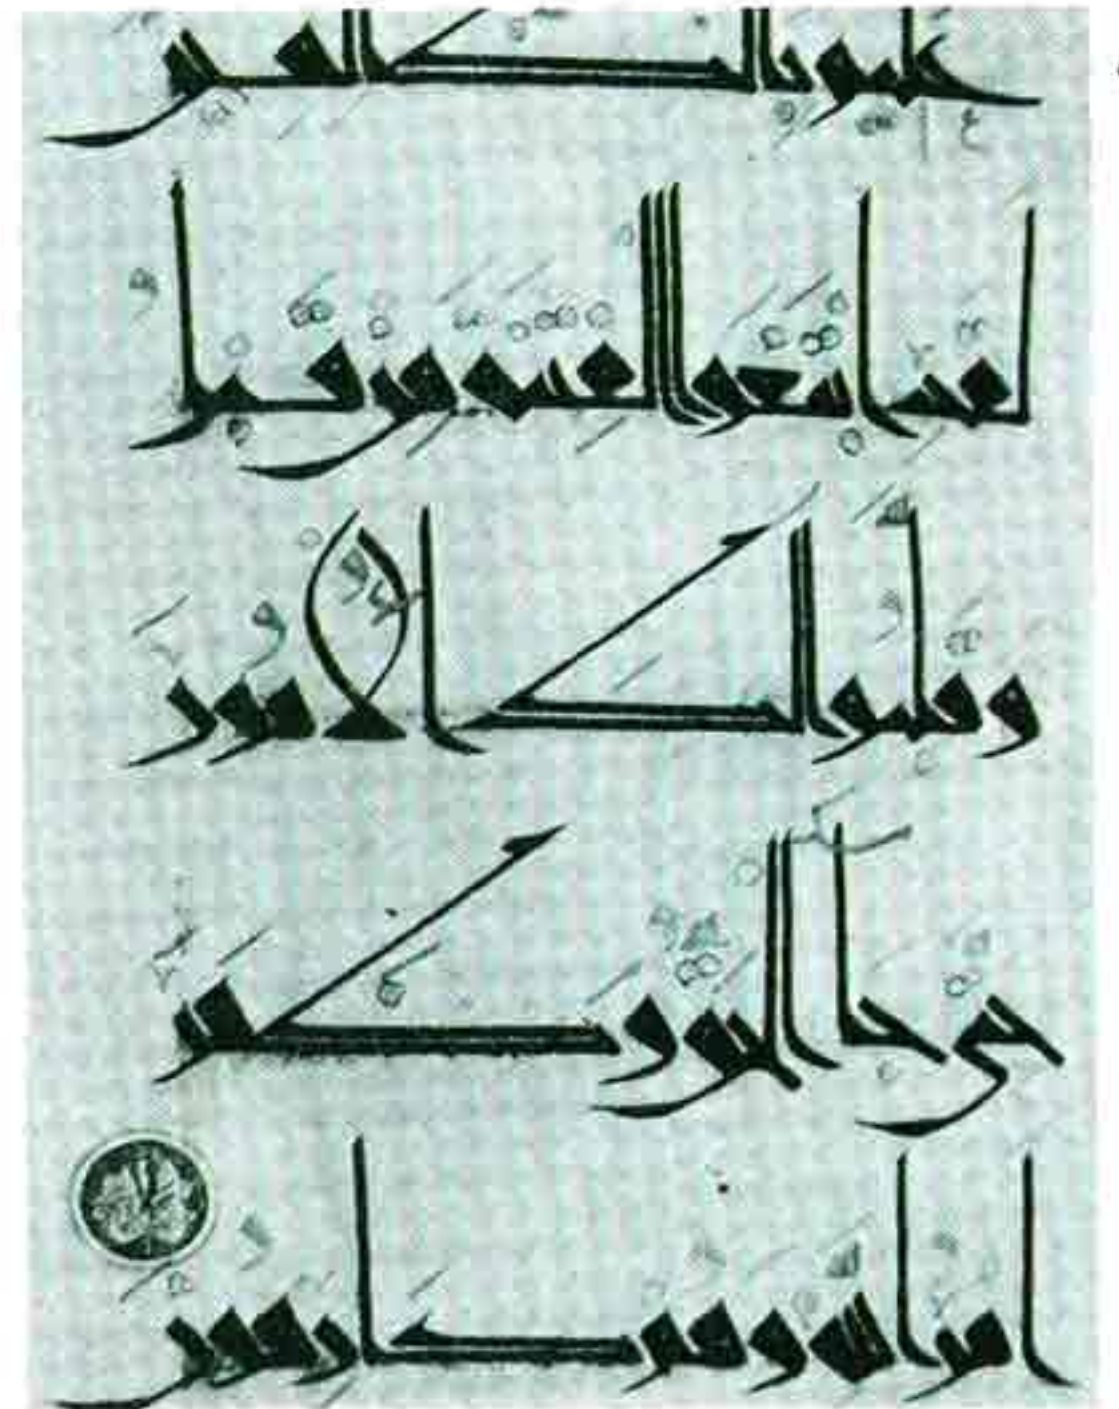 عليم بالظلمين
لقد ابتغوا الفتنة من قبل
وقلبوا لك الأمور
حتى جاء الحق وظهر
أمر الله وهم كارهون